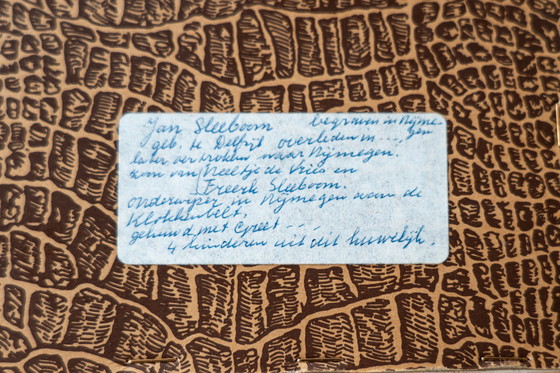 Jan Sleeboom begraven in Nijme-
geb. te Delfzijl overleden in .... gen
later vertrokken naar Nijmegen.
zoon van Neeltje de Vries en
Freerk Sleeboom.
Onderwijzer in Nijmegen aan de
Klokkenbelt,
gehuwd met Greet ...
4 kinderen uit dit huwelijk.